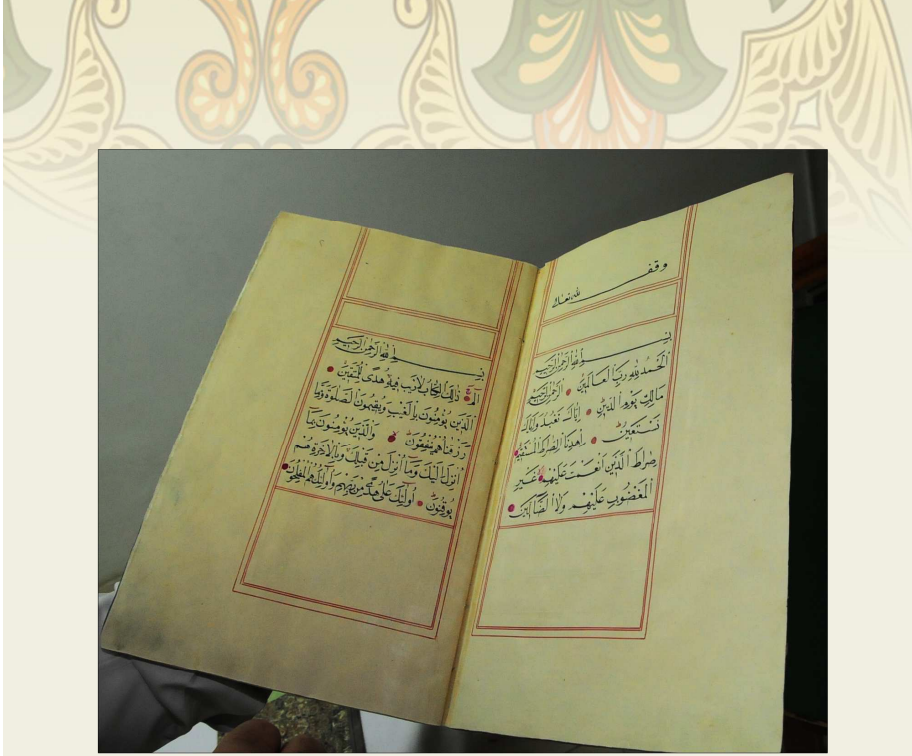 وقف
لله تعالى
بسم الله الرحمن الرحيم
الحمد لله رب العالمين الرحمن الرحيم
مالك يوم الدين اياك نعبد واياك
نستعين اهدنا الصراط المستقيم
صراط الذين انعمت عليهم غير
المغضوب عليهم ولا الضالين
بسم الله الرحمن الرحيم
الم ذلك الكتاب لاريب فيه هدى للمتقين
الذين يؤمنون بالغيب ويقيمون الصلوة ومما
رزقناهم ينفقون والذين يؤمنون بما
انزل اليك وما انزل من قبلك وبالاخرة هم
يوقنون اولئك على هدى من ربهم واولئك هم المفلحون